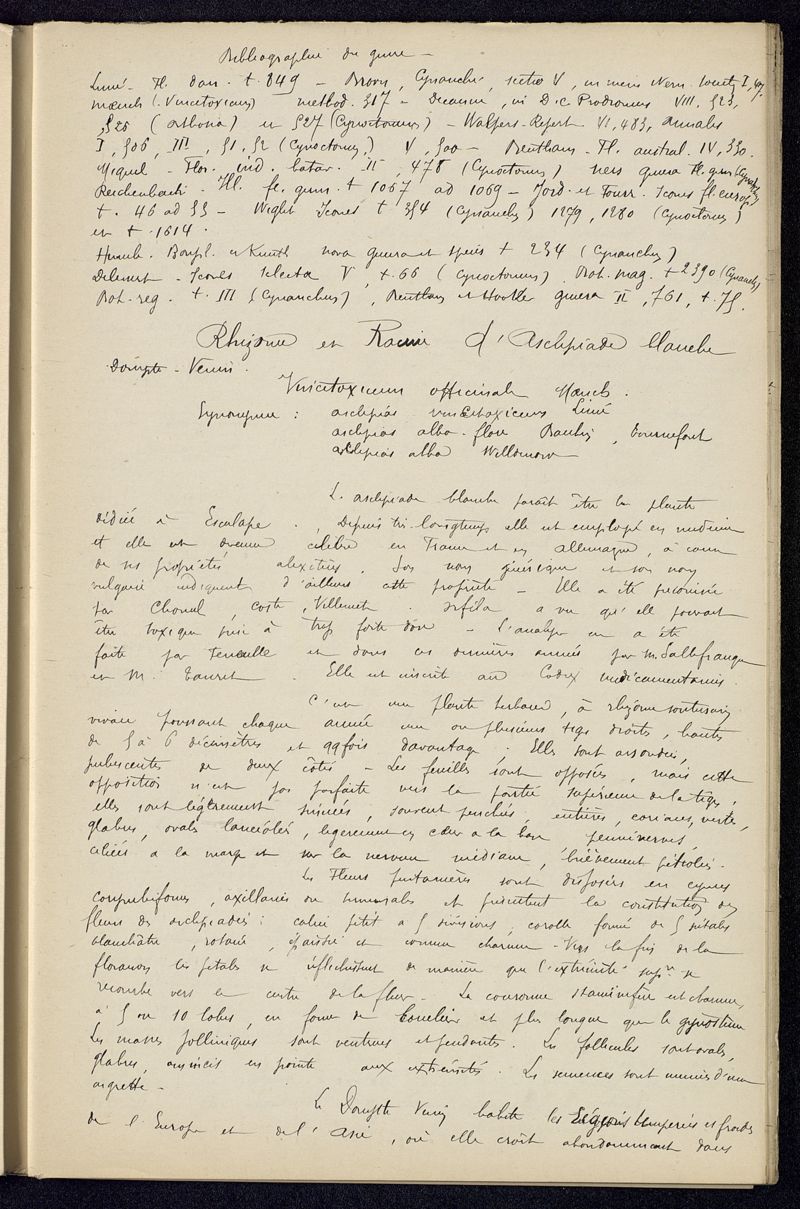 Bibliographie du genre -
Linné - Fl. dan. t. 849 - Brown, Cynanche, sectio V, in mem Wern. society I, 47,
Mœnch (Vincetoxicum) method. 317 - Decaisne, in D.C. Prodromus VIII, 523,
525 (arthonia) et 527 (Cynoctonum) - Walpers - Repert. VI, 483, annales
I, 506, III, 51, 52 (Cynoctonum,) V, 500 - Bentham - Fl. austral. IV, 330.
Miquel - Flor. ind. batav. II, 478 (Cynoctonum)
Reichenbach - Fl. germ. t 1067 ad 1069 - Jord. et Fourr. Icones fl. europ.
t. 46 ad 55 - Wight Icones t 354 (Cynanche) 1279, 1280 (Cynoctonum)
et t. 1614.
Humb. Bonpl. et Kunth nova genera et species t 234 (Cynanchum)
Delessert - Icones selecta V, t. 66 (Cynoctonum), Bot. mag. t 2390 (Cynanch)
Bot. reg. t. III (Cynanchum), Bentham et Hooker genera II, 761, t. 75.
Rhizome et Racine d'Asclépiade blanche
Dompte - Venin.
Vincetoxicum officinale Mœnch.
Synonymie : asclepias vincetoxicum Linné
asclepias albo flore Bauhin, Tournefort
asclepias alba Willdenow
L'asclépiade blanche paraît être la plante
dédiée à Esculape. Depuis très longtemps elle est employé en médecine
et elle est devenue célèbre en France et en Allemagne, à cause
de ses propriétés alexitères, Son nom générique et son nom
vulgaire indiquent d'ailleurs cette propriété - Elle a été préconisée
par Chomel, Coste, Villemet. Orfila a vu qu'elle pouvait
être toxique prise à trop forte dose - L'analyse en a été
faite par Feneulle et dans ces dernières années par M. Gallefranque
et M. Tanret. Elle est inscrite au Codex medicamentarius.
C'est une plante herbacée, à rhizome souterrain
vivace poussant chaque année une ou plusieurs tiges droites, hautes
de 5 à 6 décimètres et qqfois davantage. Elles sont arrondies,
pubescentes de deux côtés - Les feuilles sont opposées, mais cette
opposition n'est pas parfaite vers la partie supérieure de la tige,
elles sont légèrement sinuées, souvent penchées, entières, coriaces, vertes,
glabres, ovales lancéolées, légèrement en cœur à la base penninerves,
ciliées à la marge et sur la nervure médiane, brièvement pétiolées.
Les Fleurs printanières sont disposées en cymes
corymbiformes, axillaires ou terminales et présentent la constitution des
fleurs des asclépiadées : calice petit à 5 divisions, corolle formée de 5 pétales
blanchâtre, rotacée, épaisse et comme charnue - Vers la fin de la
floraison les pétales se réfléchissent de manière que l'extrémité supre se
recourbe vers le centre de la fleur - La couronne staminifère est charnue,
à 5 ou 10 lobes, en forme de bouclier et plus longue que le gynostème
Les masses polliniques sont ventrues et pendantes. Les follicules sont ovales,
glabres, amincis en pointe aux extrémités. Les semences sont munies d'une
aigrette -
Le Dompte Venin habite les régions tempérées et froides
de l'Europe et de l'Asie, où elle croît abondamment dans